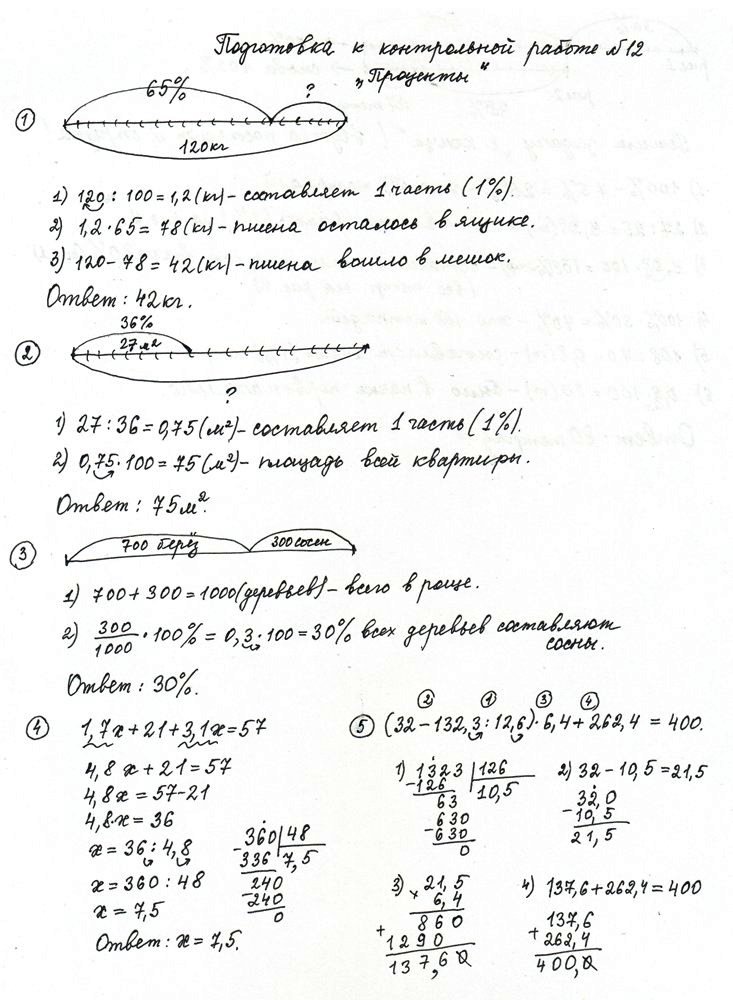 Подготовка к контрольной работе №12
„Проценты“
65%
?
①
120 кг
1) 120 : 100 = 1,2 (кг) – составляет 1 часть (1%).
2) 1,2 · 65 = 78 (кг) – пшена осталось в ящике.
3) 120 – 78 = 42 (кг) – пшена вошло в мешок.
Ответ: 42 кг.
36%
②
27 м²
?
1) 27 : 36 = 0,75 (м²) – составляет 1 часть (1%).
2) 0,75 · 100 = 75 (м²) – площадь всей квартиры.
Ответ: 75 м².
③
700 берёз
300 сосен
1) 700 + 300 = 1000 (деревьев) – всего в роще.
2) 300/1000 · 100% = 0,3 · 100 = 30% всех деревьев составляют
сосны.
Ответ: 30%.
④
1,7x + 21 + 3,1x = 57
4,8x + 21 = 57
4,8x = 57 – 21
4,8 · x = 36
x = 36 : 4,8
x = 360 : 48
x = 7,5
360 | 48
– 336 | 7,5
240
– 240
0
Ответ: x = 7,5.
② ① ③ ④
⑤ (32 – 132,3 : 12,6) · 6,4 + 262,4 = 400.
1) 1323 | 126
– 126 | 10,5
63
630
– 630
0
2) 32 – 10,5 = 21,5
32,0
– 10,5
21,5
3) 21,5
× 6,4
860
+ 1290
137,60
4) 137,6 + 262,4 = 400
137,6
+ 262,4
400,0